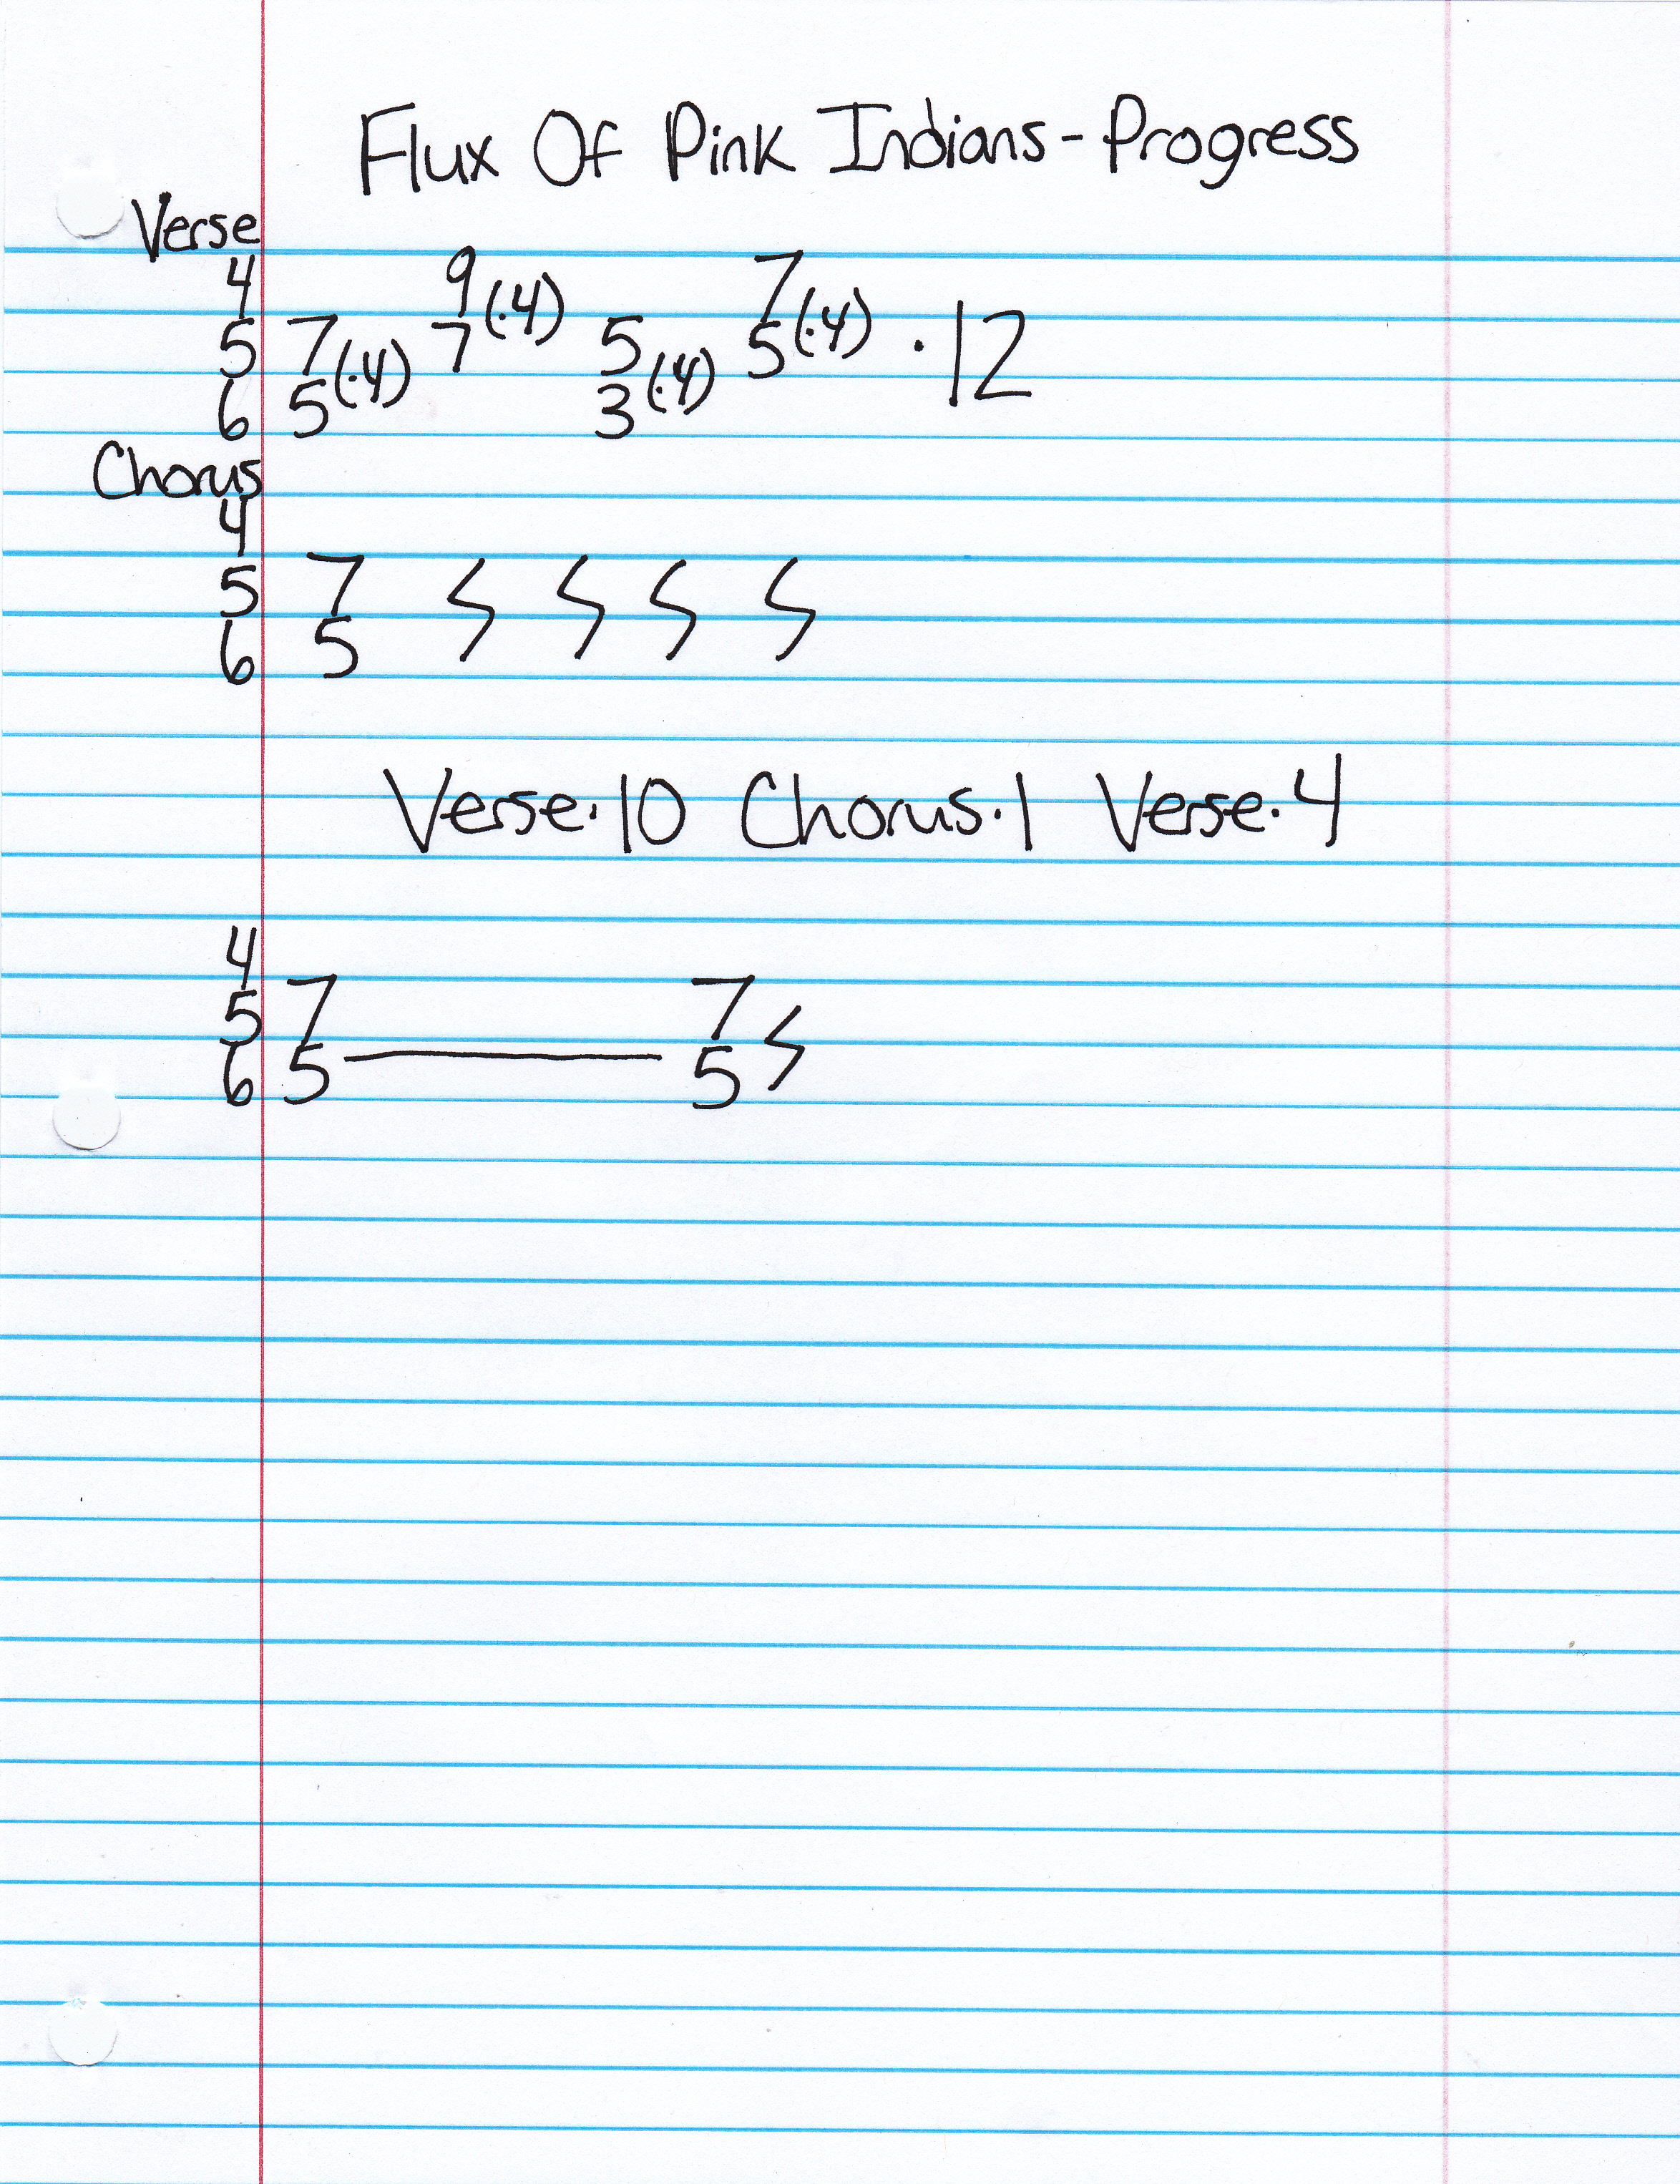 Flux Of Pink Indians - Progress
Verse
4 9(·4) 7(·4)
5 7(·4) 7 5 5 ·12
6 5 3(·4)
Chorus
4
5 7
6 5
Verse·10 Chorus·1 Verse·4
4
5 7 7
6 5 5